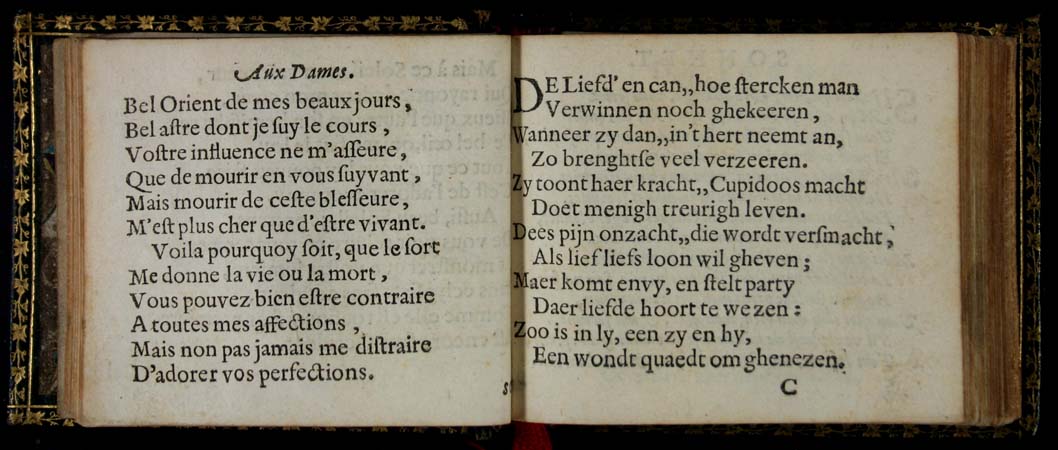 Aux Dames.
Bel Orient de mes beaux jours,
Bel astre dont je suy le cours,
Vostre influence ne m'asseure,
Que de mourir en vous suyvant,
Mais mourir de ceste blesseure,
M'est plus cher que d'estre vivant.
Voila pourquoy soit, que le sort
Me donne la vie ou la mort,
Vous pouvez bien estre contraire
A toutes mes affections,
Mais non pas jamais me distraire
D'adorer vos perfections.
DE Liefd' en can,,hoe stercken man
Verwinnen noch ghekeeren,
Wanneer zy dan,,in't hert neemt an,
Zo brenghtse veel verzeeren.
Zy toont haer kracht,,Cupidoos macht
Doet menigh treurigh leven.
Dees pijn onzacht,,die wordt versmacht,
Als lief liefs loon wil gheven;
Maer komt envy, en stelt party
Daer liefde hoort te wezen:
Zoo is in ly, een zy en hy,
Een wondt quaedt om ghenezen.
C